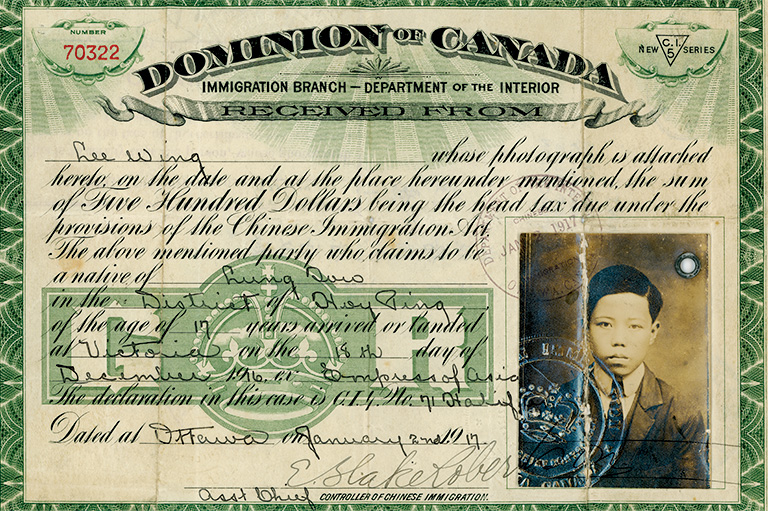 NUMBER
70322
DOMINION OF CANADA
NEW C.I. 5 SERIES
IMMIGRATION BRANCH — DEPARTMENT OF THE INTERIOR
RECEIVED FROM
Lee Wing whose photograph is attached
hereto, on the date and at the place hereunder mentioned, the sum
of Five Hundred Dollars being the head tax due under the
provisions of the Chinese Immigration Act.
The above mentioned party who claims to be
a native of Lung
in the District of Hoy Ping
of the age of 17 years arrived or landed
at Victoria on the 18th day of
December 1916, ex Empress of Asia
The declaration in this case is C.I.4. No. 71
Dated at Ottawa on January 2nd 1917
E. Blake
Asst Chief CONTROLLER OF CHINESE IMMIGRATION.
G R
1917